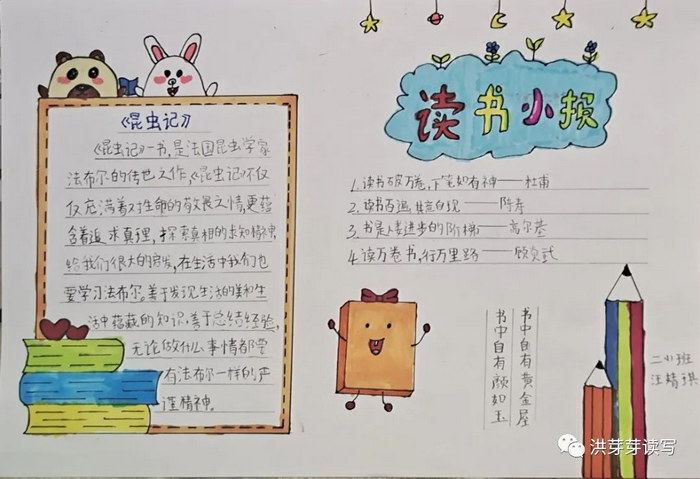 《昆虫记》
《昆虫记》一书,是法国昆虫学家
法布尔的传世之作,《昆虫记》不仅
仅充满着对生命的敬畏之情,更蕴
含着追求真理,探索真相的求知精神,
给我们很大的启发,在生活中我们也
要学习法布尔。善于发现生活的美和生
活中蕴藏的知识,善于总结经验,
无论做什么事情都要
有法布尔一样的严
谨精神。
读书小报
1.读书破万卷,下笔如有神——杜甫
2.读书百遍,其意自现——陈寿
3.书是人类进步的阶梯——高尔基
4.读万卷书,行万里路——顾炎武
书中自有黄金屋
书中自有颜如玉
二小班
汪婧琪
洪芽芽读写